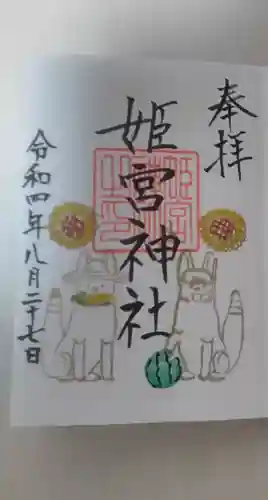 奉拝
姫宮神社
令和四年八月二十七日